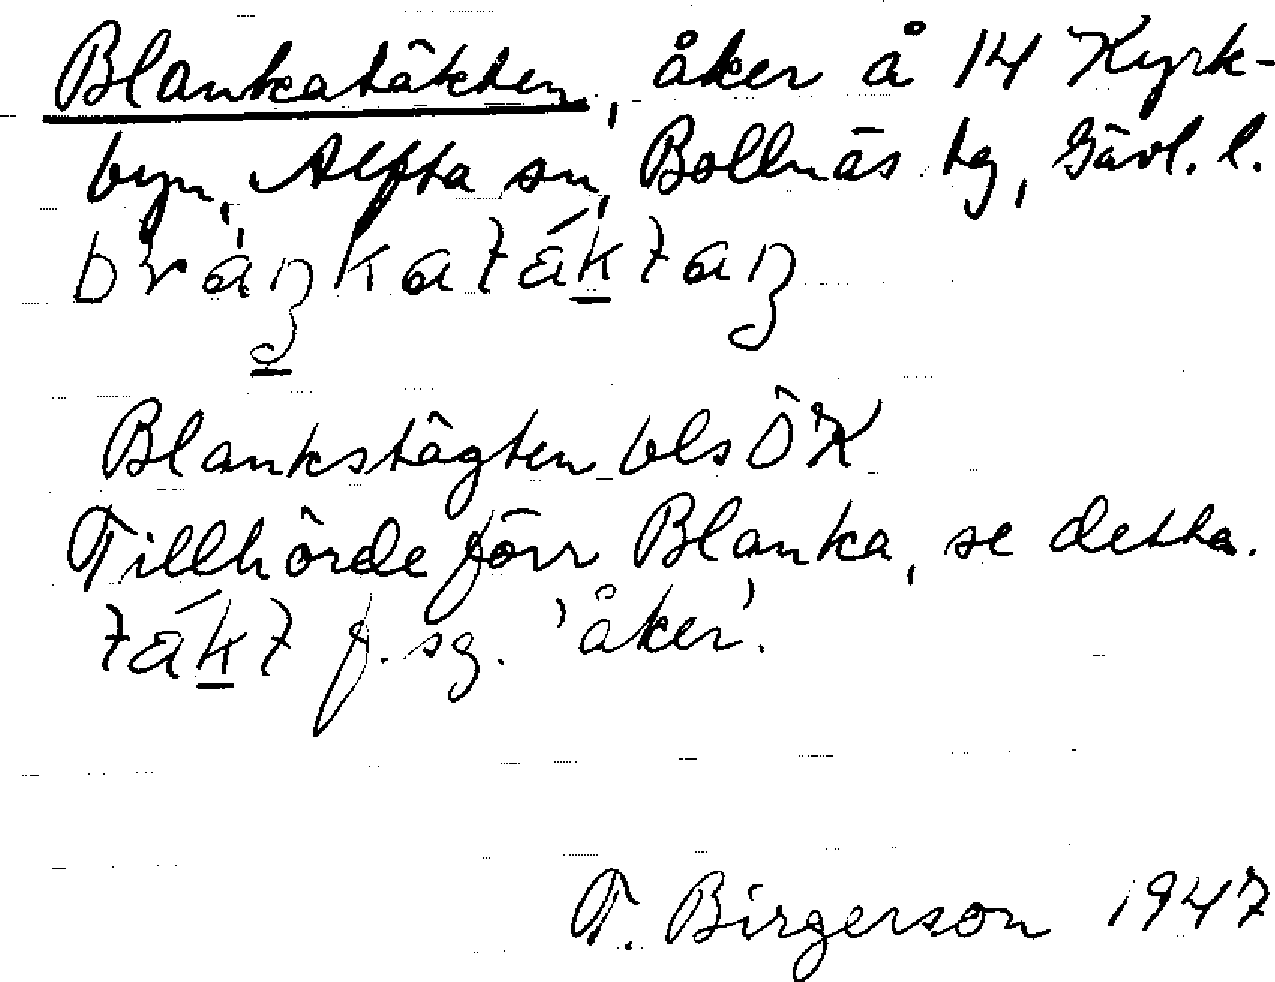 Blankatäkten, åker å 14 Kyrk-
byn, Alfta sn, Bollnäs tg, Gävl. l.
Blankstägten bls ÖK
Tillhörde förr Blanka, se detta.
f. sg. 'åker'.
T. Birgerson 1947